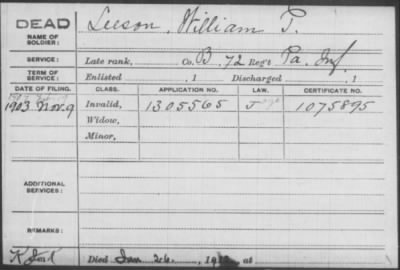 DEAD
NAME OF SOLDIER: Leeson, William T.
SERVICE: Late rank, Co. B, 72 Reg't Pa. Inf
TERM OF SERVICE: Enlisted , 1 Discharged , 1
DATE OF FILING. CLASS. APPLICATION NO. LAW. CERTIFICATE NO.
1903 Nov. 9 Invalid, 1305565 J 1075895
Widow,
Minor,
ADDITIONAL SERVICES:
REMARKS:
Died Jan 26. , 19 , at